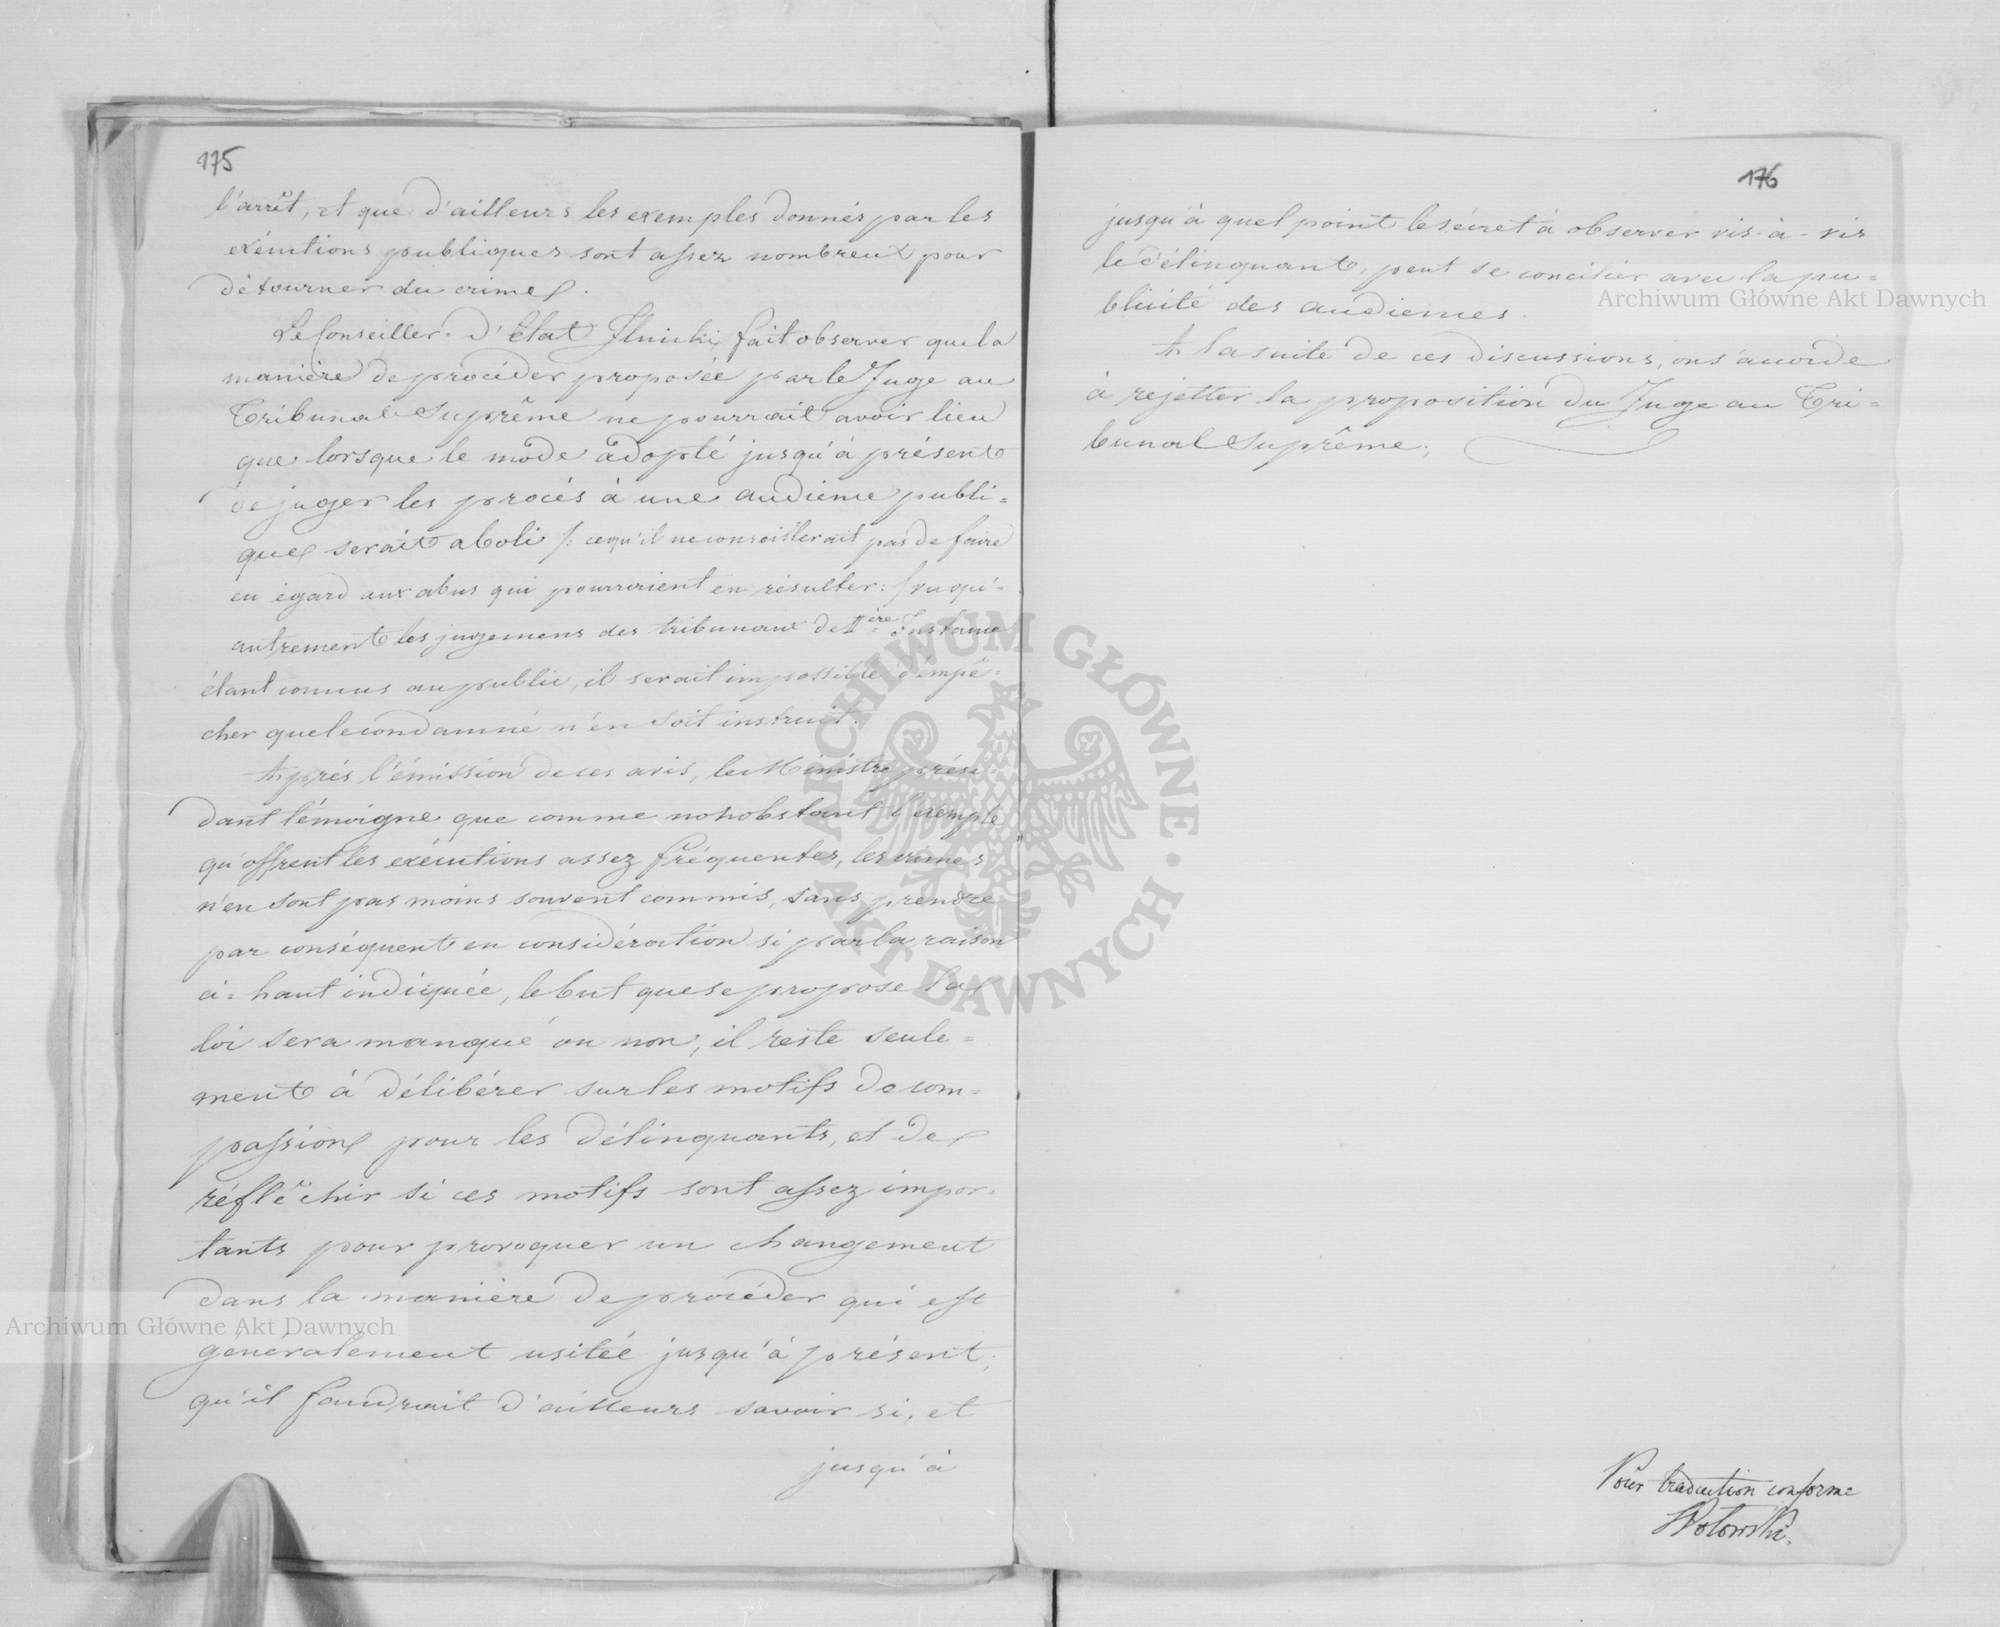 175
l'arrêt, et que d'ailleurs les exemples donnés par les
exécutions publiques sont assez nombreux pour
détourner du crime.
Le Conseiller d'Etat fait observer que la
manière de procéder proposée par le Juge au
Tribunal Suprême ne pourrait avoir lieu
que lorsque le mode adopté jusqu'à présent
de juger les procès à une audience publi=
que serait aboli /: ce qu'il ne conseillerait pas de faire
eu égard aux abus qui pourraient en résulter :/ vu qu'
autrement les jugemens des tribunaux de 1ère Instance
étant connus au public, il serait impossible d'empê=
cher que le condamné n'en soit instruit.
Après l'émission de ces avis, le Ministre prési=
dant témoigne que comme nonobstant l'exemple
qu'offrent les exécutions assez fréquentes, les crimes
n'en sont pas moins souvent commis, sans prendre
par conséquent en considération si par la raison
ci=haut indiquée, le but que se propose la
loi sera manqué ou non, il reste seule=
ment à délibérer sur les motifs de com=
passion pour les délinquants, et de
réfléchir si ces motifs sont assez impor=
tants pour provoquer un changement
dans la manière de procéder qui est
généralement usitée jusqu'à présent;
qu'il faudrait d'ailleurs savoir si, et
jusqu'à
176
jusqu'à quel point le sécret à observer vis-à-vis
le délinquant, peut se concilier avec la pu=
blicité des audiences.
A la suite de ces discussions, on s'accorde
à rejetter la proposition du Juge au Tri=
bunal Suprême.
Pour traduction conforme
Archiwum Główne Akt Dawnych
Archiwum Główne Akt Dawnych
ARCHIWUM GŁÓWNE AKT DAWNYCH